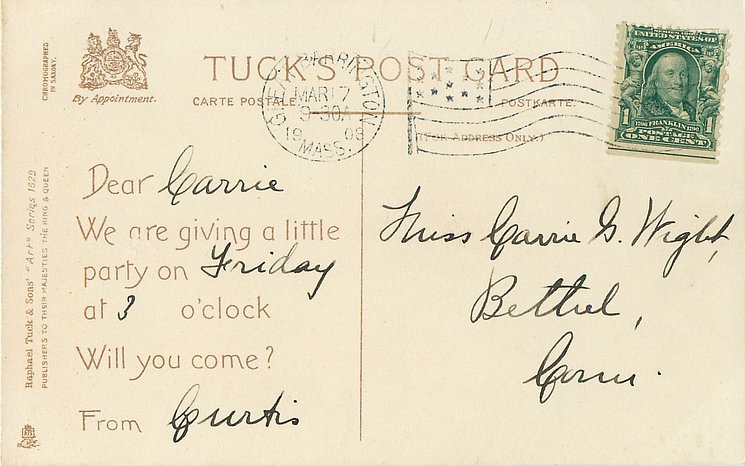 CHROMOGRAPHED
IN SAXONY.
By Appointment.
TUCK'S POST CARD
CARTE POSTALE.
POSTKARTE.
(FOR ADDRESS ONLY.)
GREAT BARRINGTON
MAR 17
9-30A
1908
MASS.
UNITED STATES OF
AMERICA
1706 FRANKLIN 1790
1 POSTAGE 1
ONE CENT
Raphael Tuck & Sons' "Art" Series 1629
PUBLISHERS TO THEIR MAJESTIES THE KING & QUEEN
Dear Carrie
We are giving a little
party on Friday
at 3 o'clock
Will you come?
From Curtis
Miss Carrie G. Wight,
Bethel,
Conn.